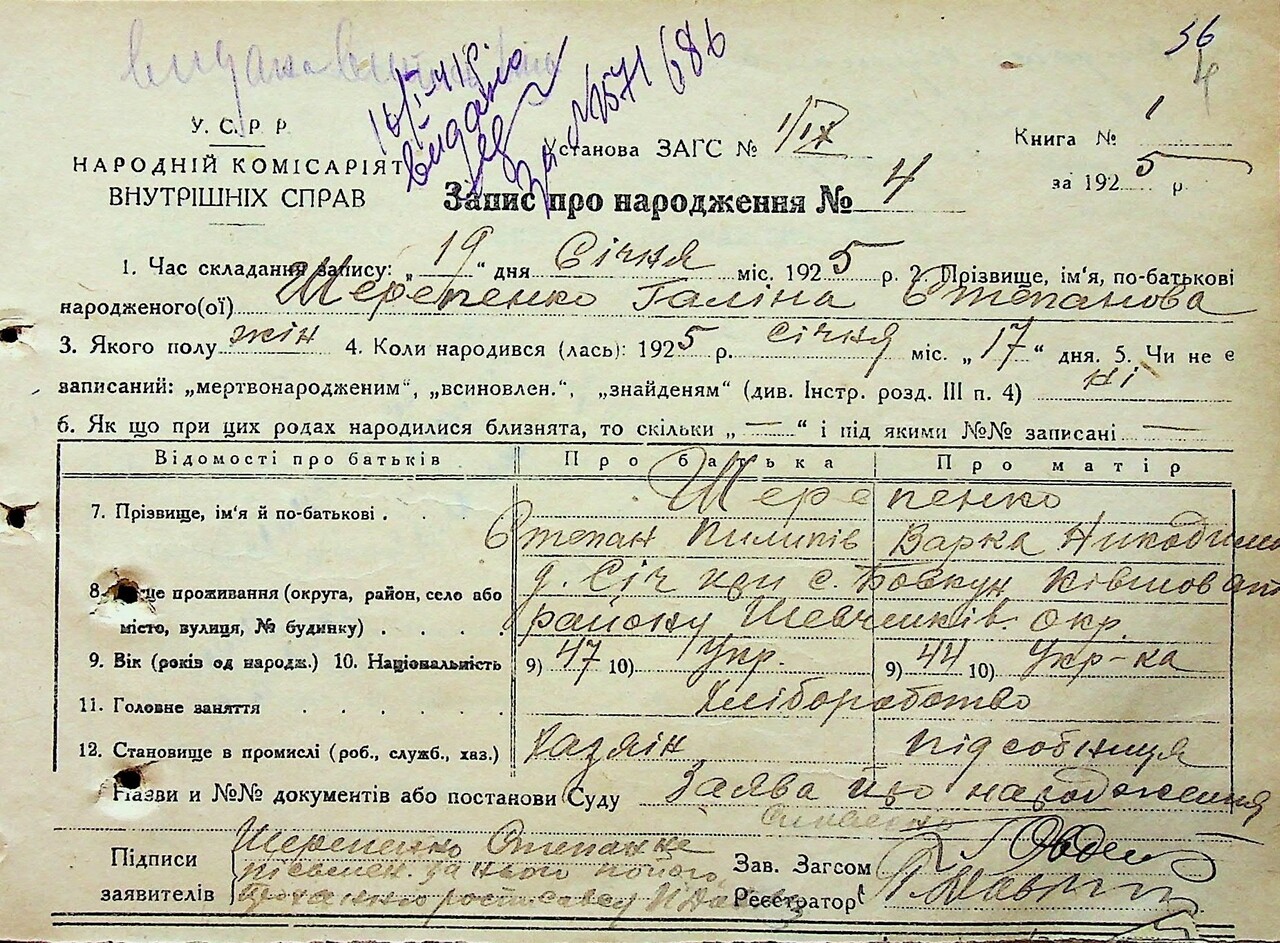 36
4
16/I-41 р.
Видано
за №1571 686
У. С. Р. Р.
НАРОДНІЙ КОМІСАРІЯТ
ВНУТРІШНІХ СПРАВ
Установа ЗАГС № 1/IX
Книга № 1
за 1925 р.
Запис про народження № 4
1. Час складання запису: „19“ дня Січня міс. 1925 р. 2. Прізвище, ім'я, по-батькові
народженого(ої) Шерепенко Галіна Степанова
3. Якого полу жін 4. Коли народився (лась): 1925 р. січня міс. „17“ дня. 5. Чи не є
записаний: „мертвонародженим“, „всиновлен.“, „знайденям“ (див. Інстр. розд. III п. 4) ні
6. Як що при цих родах народилися близнята, то скільки „—“ і під якими №№ записані —
Відомості про батьків Про батька Про матір
7. Прізвище, ім'я й по-батькові Шерепенко
Степан Пилипів Варка Никодим
8. проживання (округа, район, село або д. Січ при с. Бовкун Ківшоват
місто, вулиця, № будинку) району Шевченків. окр.
9. Вік (років од народж.) 10. Національність 9) 47 10) Укр. 9) 44 10) Укр-ка
11. Головне заняття Хліборобство
12. Становище в промислі (роб., служб., хаз.) Хазяін підсобниця
Назви и №№ документів або постанови Суду Заява про народження
Підписи
заявителів
Шерепенко Степан не
письмен. за нього
Зав. Загсом
Реєстратор